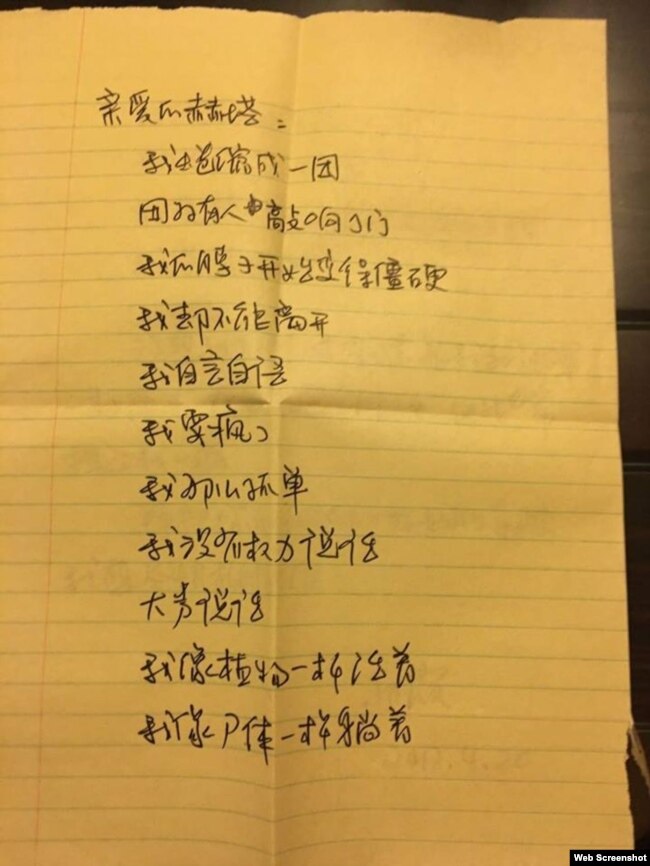 亲爱的赫塔:
我也蜷缩成一团
因为有人敲响了门
我的脖子开始变得僵硬
我却不能离开
我自言自语
我要疯了
我那么孤单
我没有权力说话
大声说话
我像植物一样活着
我像尸体一样躺着
Web Screenshot